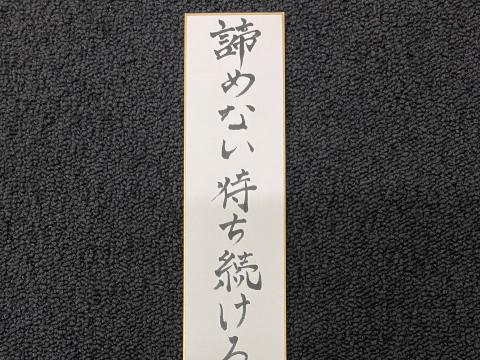 諦めない待ち続ける